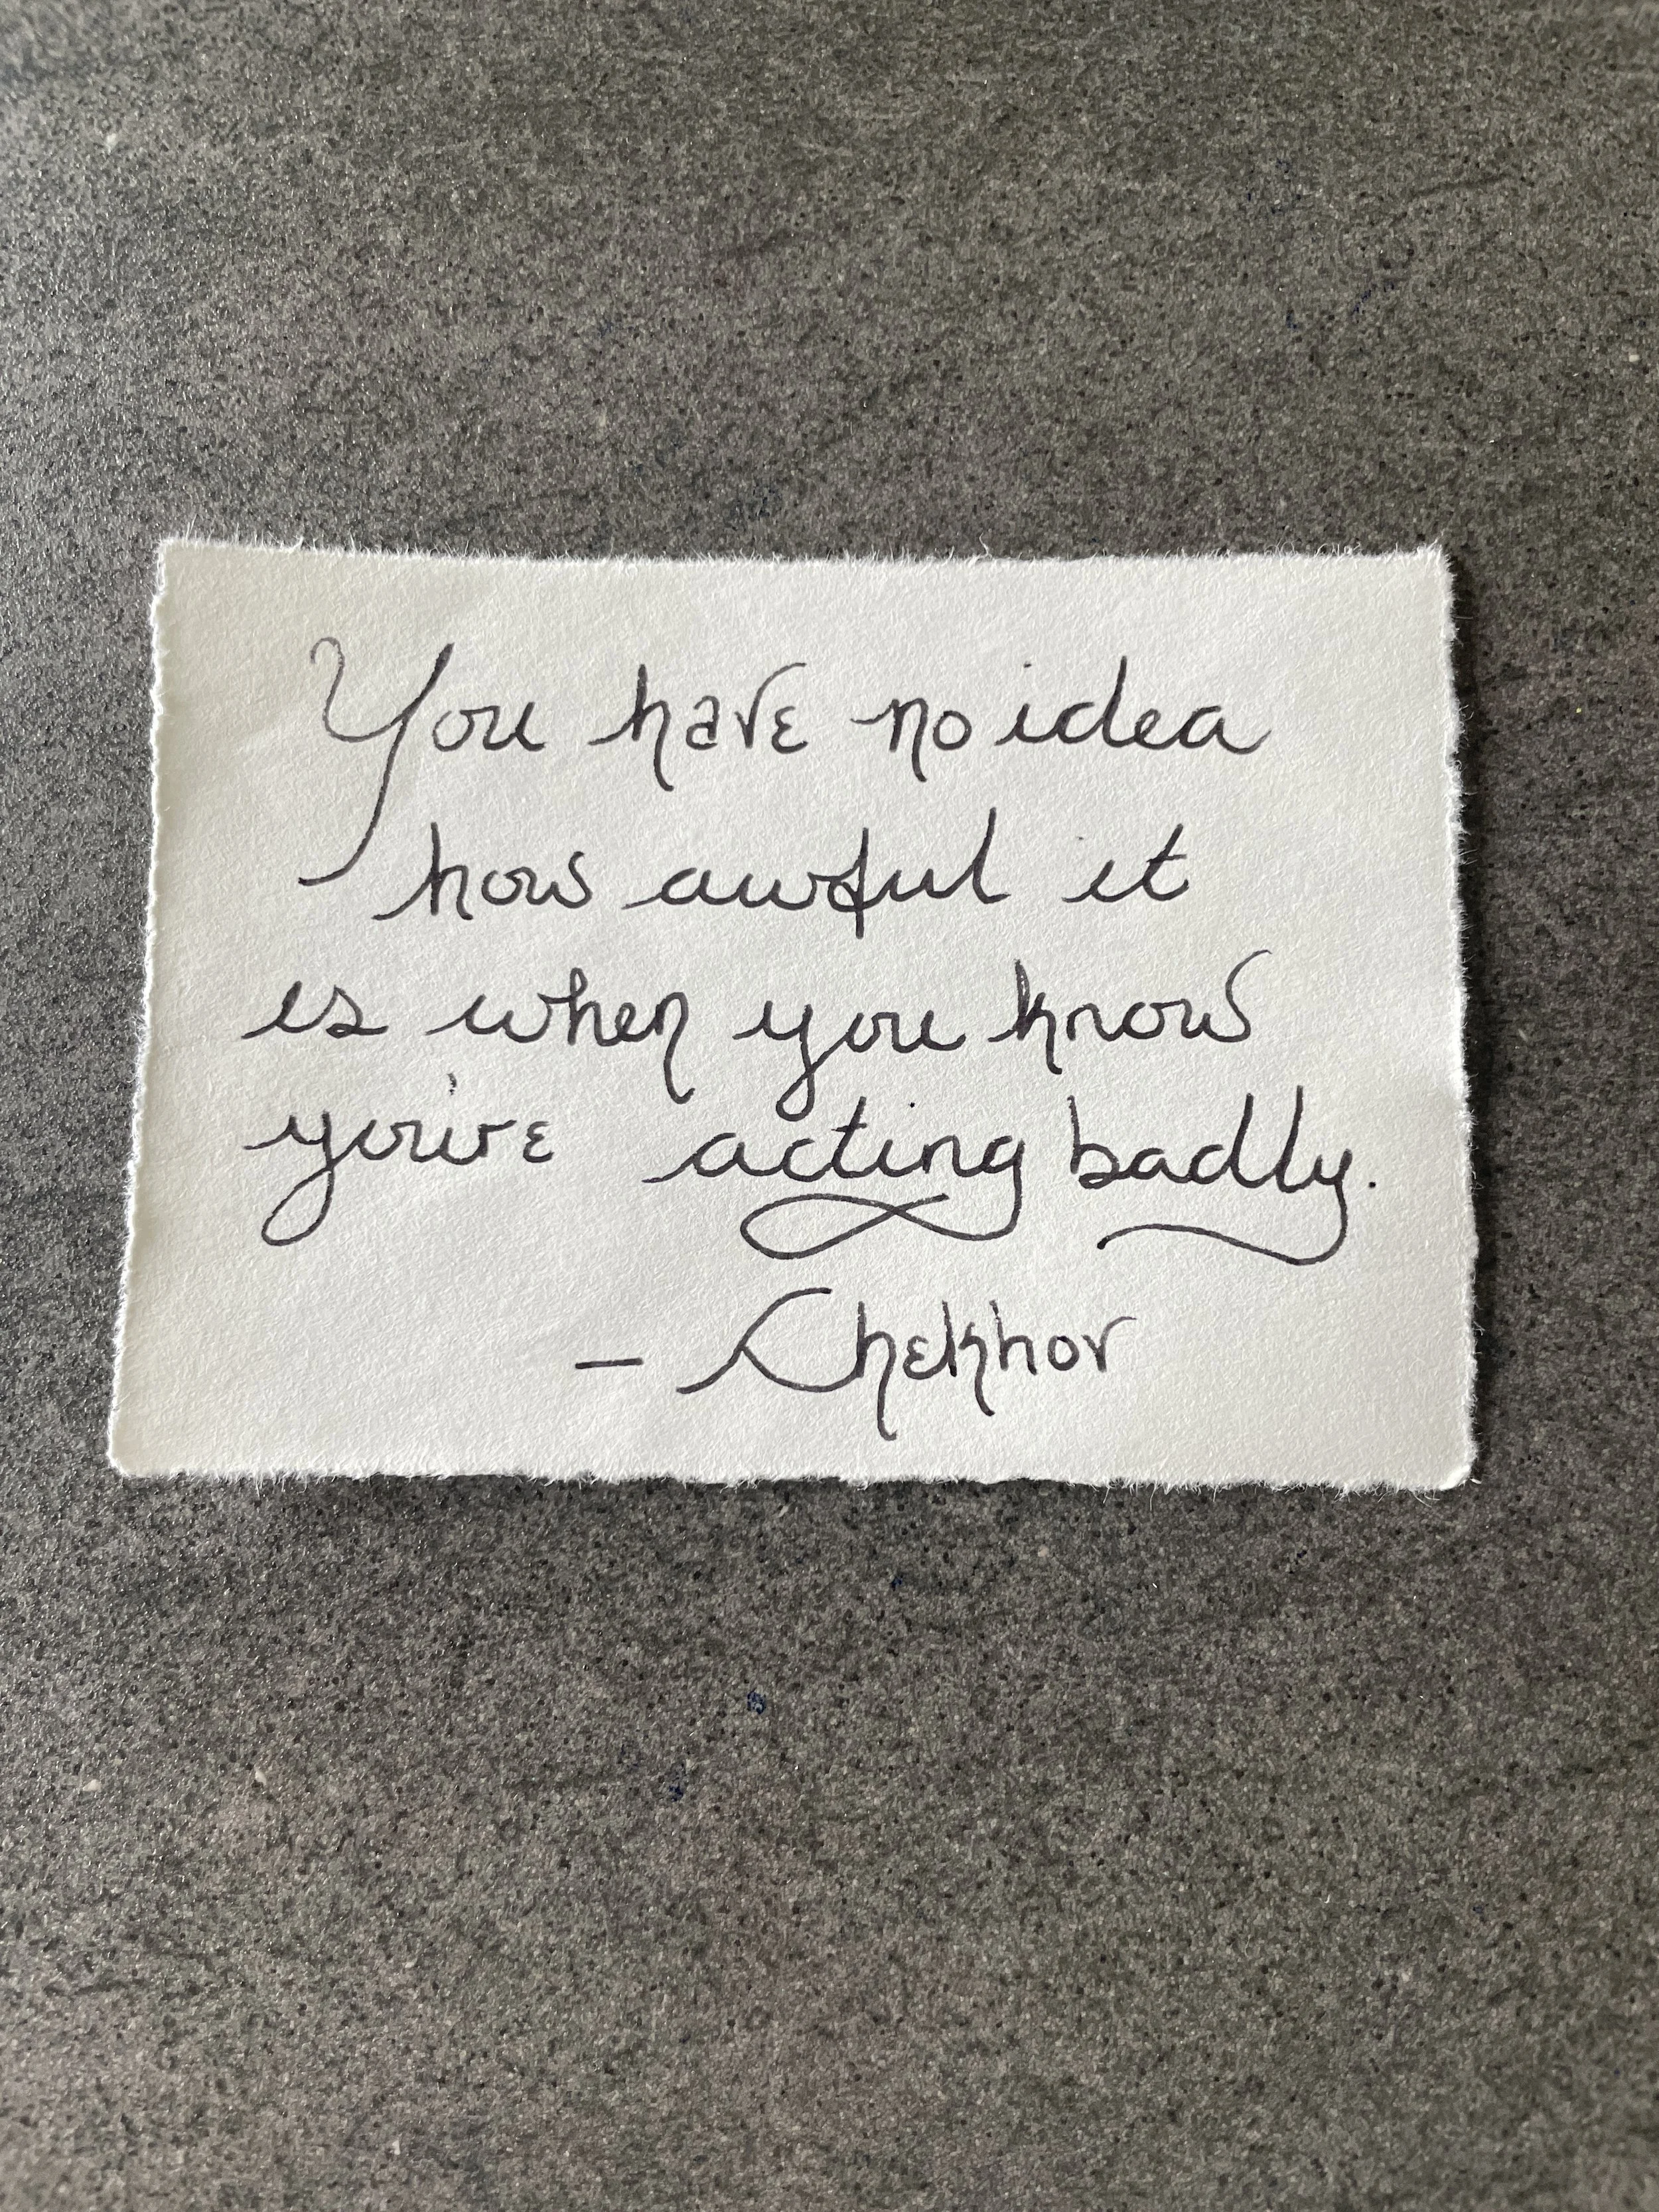 You have no idea
how awful it
is when you know
you're acting badly.
- Chekhov